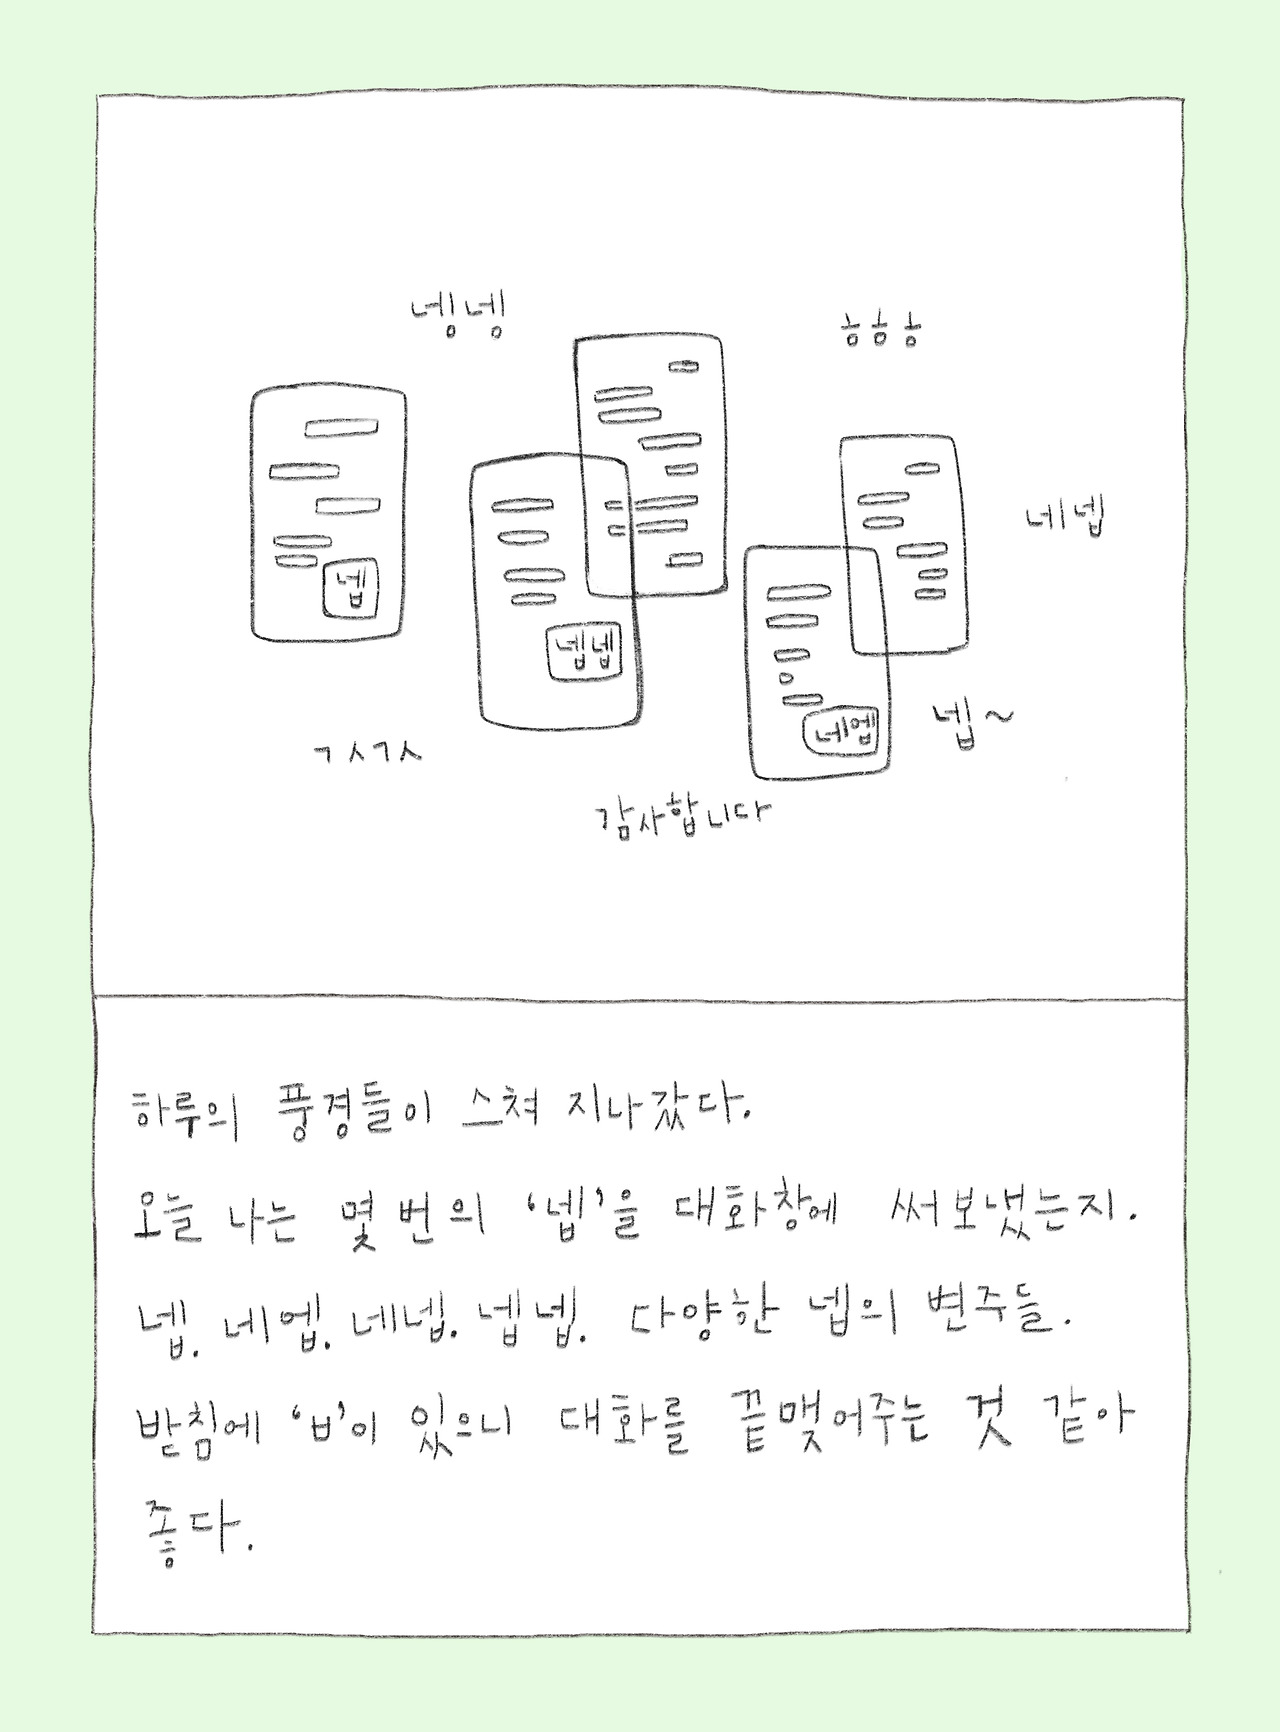 넹넹
ㅎㅎㅎ
네넵
넵
넵넵
네엡
넵~
ㄱㅅㄱㅅ
감사합니다
하루의 풍경들이 스쳐 지나갔다.
오늘 나는 몇 번의 '넵'을 대화창에 써보냈는지.
넵. 네엡. 네넵. 넵넵. 다양한 넵의 변주들.
받침에 'ㅂ'이 있으니 대화를 끝맺어주는 것 같아
좋다.